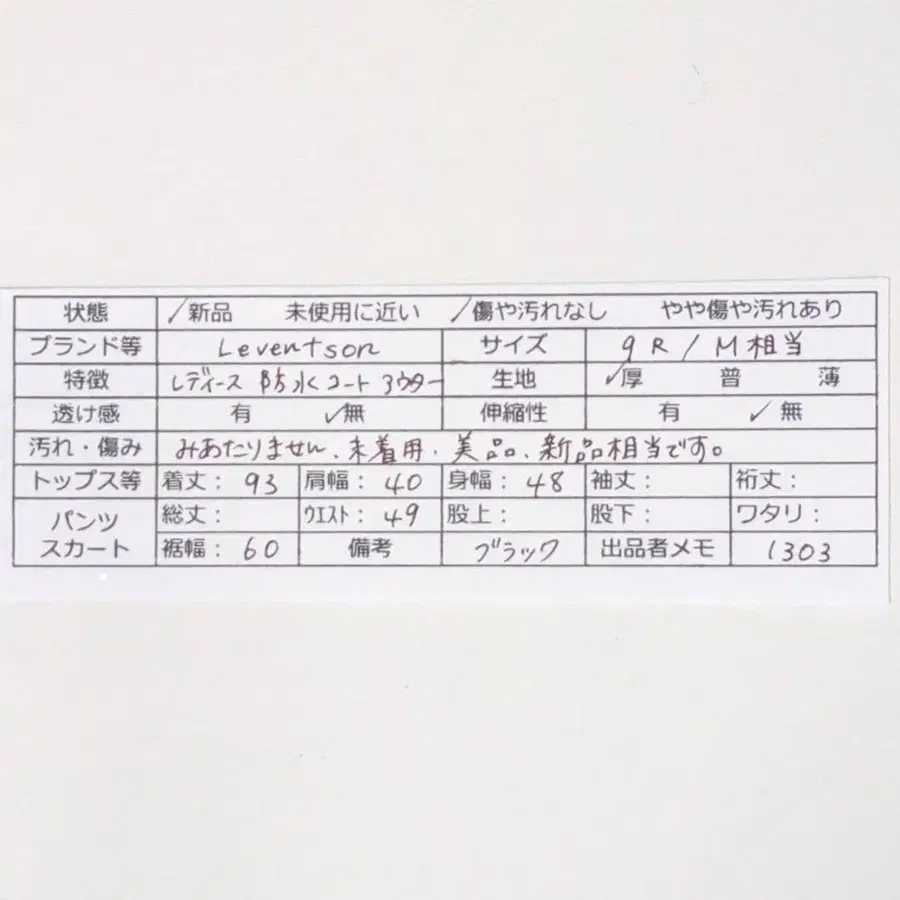 状態 ✓新品 未使用に近い ✓傷や汚れなし やや傷や汚れあり
ブランド等 Leventson サイズ 9R/M相当
特徴 レディース 防水コート アウター 生地 ✓厚 普 薄
透け感 有 ✓無 伸縮性 有 ✓無
汚れ・傷み みあたりません、未着用・美品、新品相当です。
トップス等 着丈:93 肩幅:40 身幅:48 袖丈: 裄丈:
パンツ スカート 総丈: ウエスト:49 股上: 股下: ワタリ:
裾幅:60 備考 ブラック 出品者メモ 1303